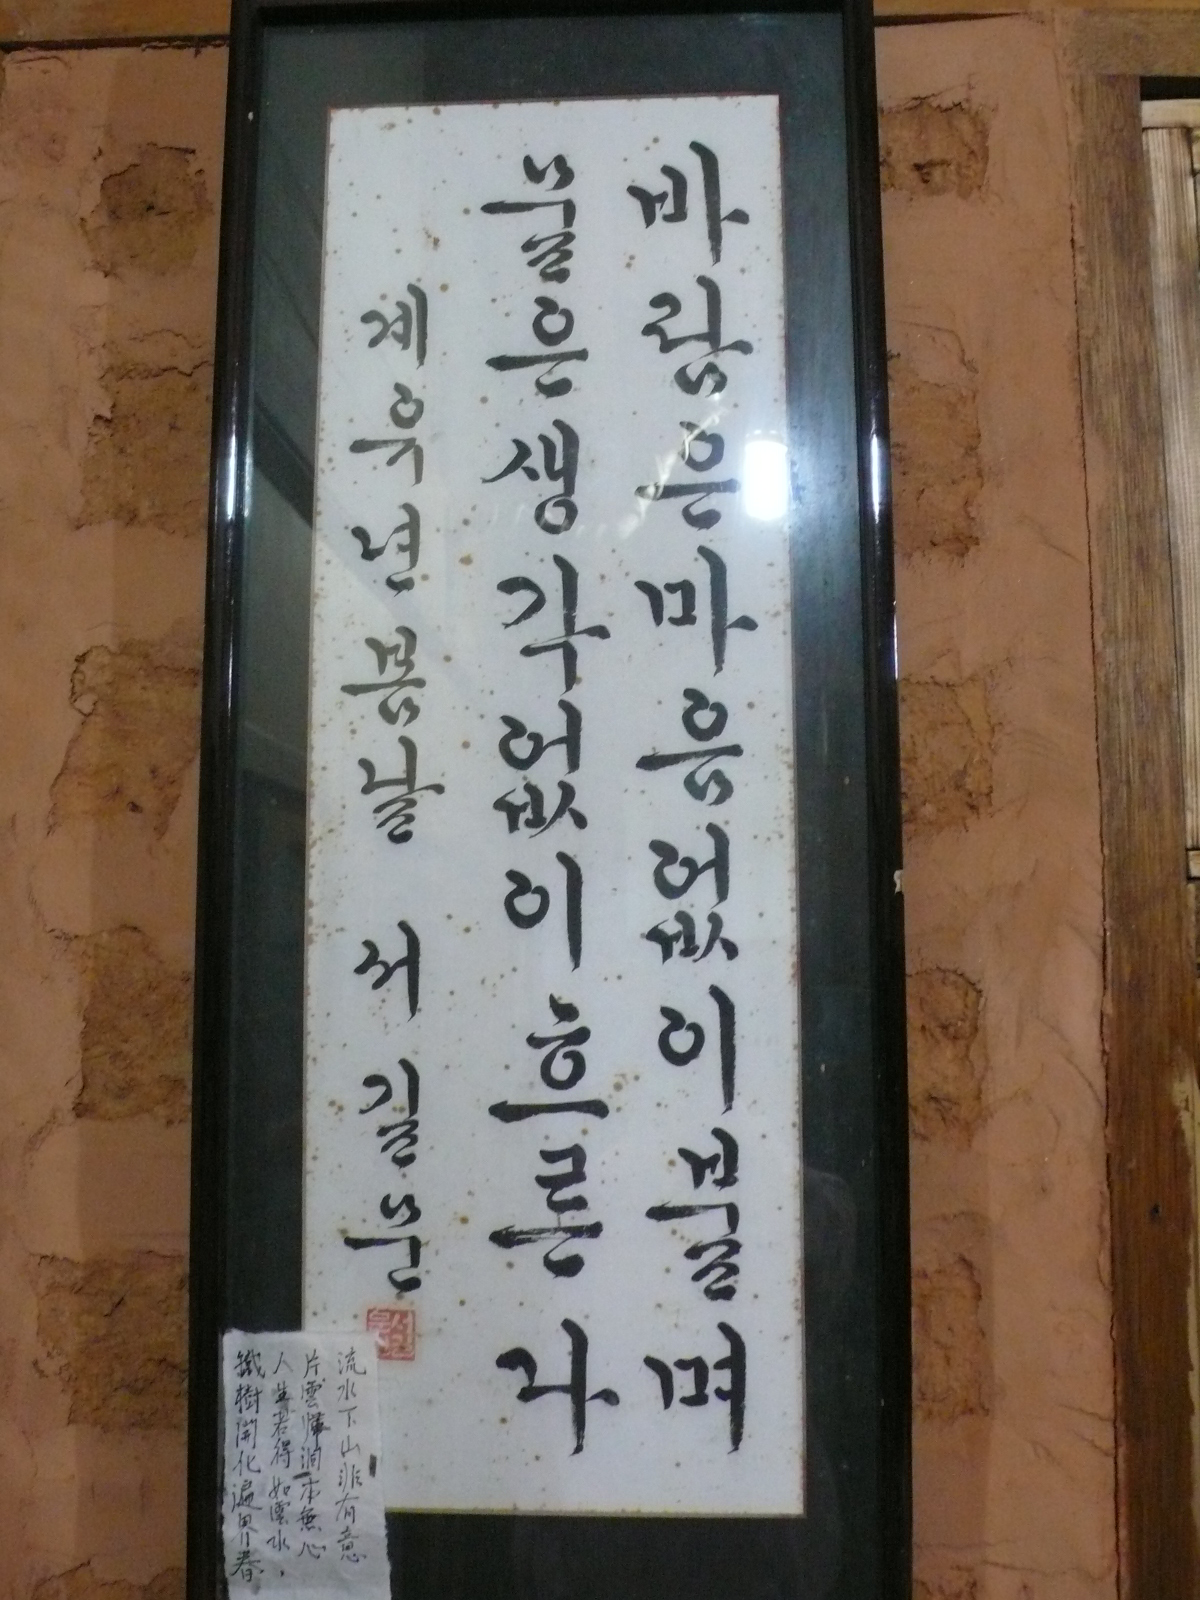 바람은마음없이불며
물은생각없이흐른다
계유년봄날 서길문
流水下山非有意
片雲歸洞本無心
人生若得如雲水,
鐵樹開化遍界春